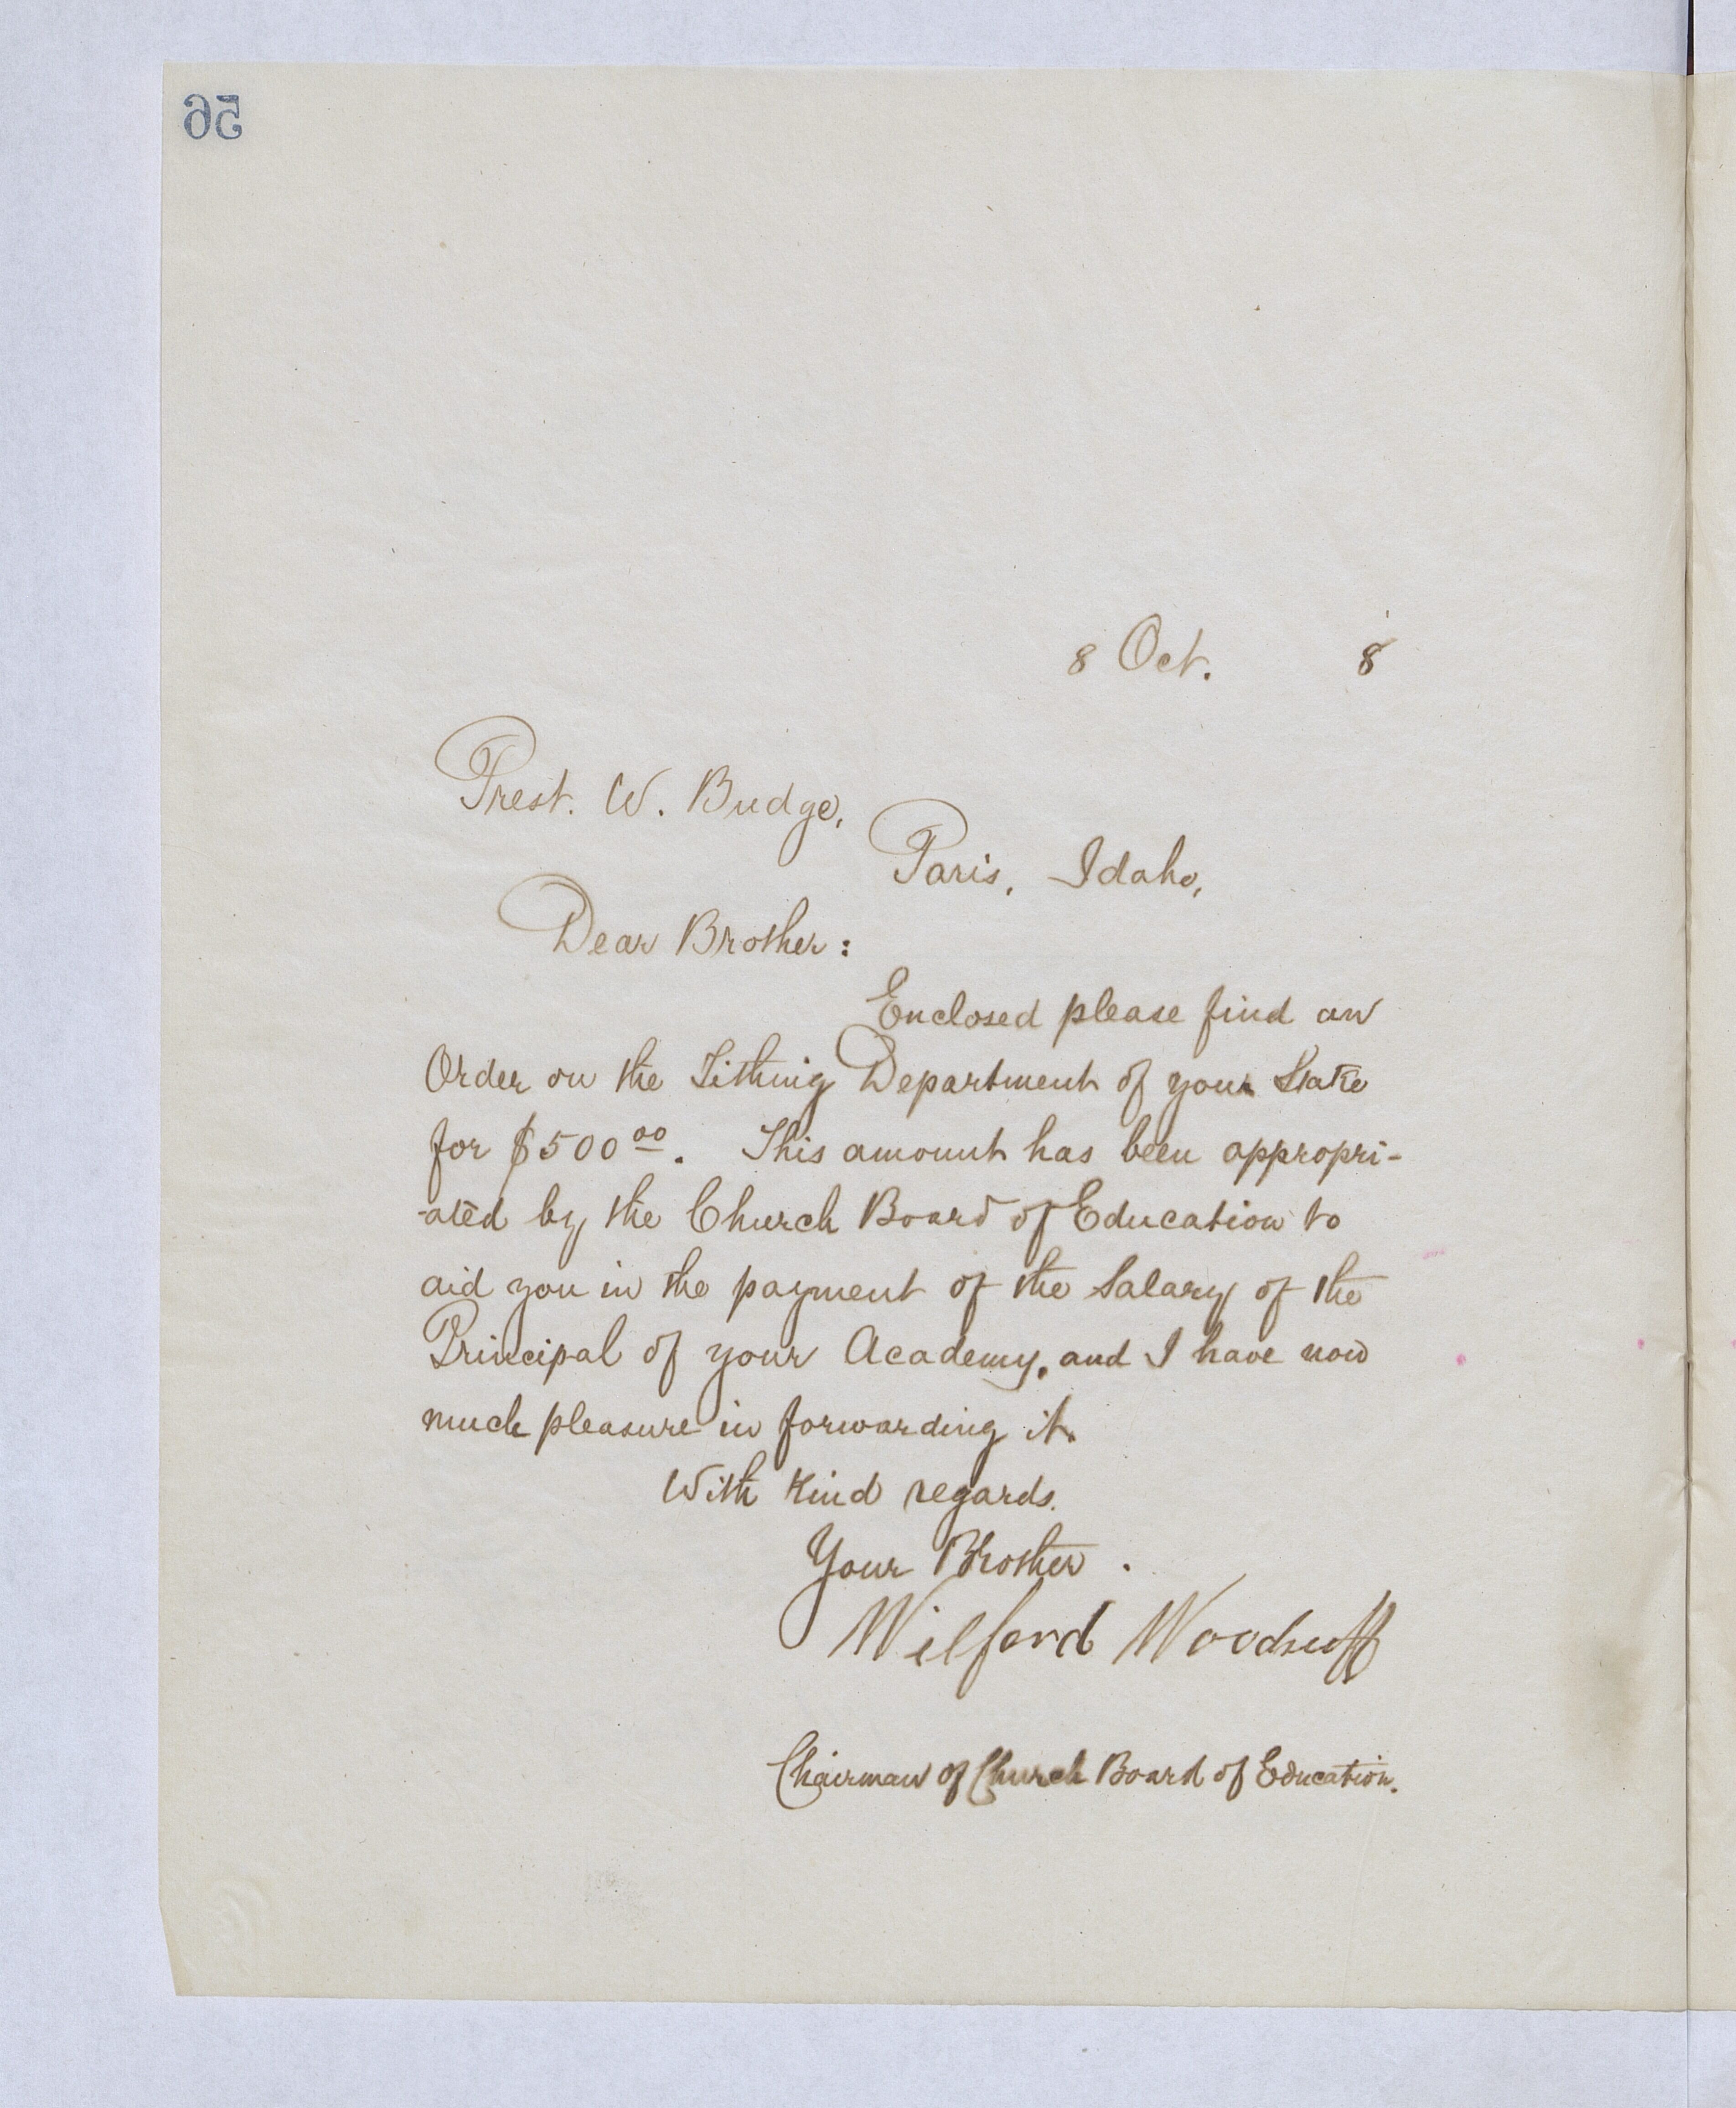 56
8 Oct. 8
Prest. W. Budge,
Paris, Idaho,
Dear Brother:
Enclosed please find an
Order on the Tithing Department of your Stake
for $500 00. This amount has been appropri-
-ated by the Church Board of Education to
aid you in the payment of the Salary of the
Principal of your Academy, and I have now
much pleasure in forwarding it.
With kind regards.
Your Brother.
Wilford Woodruff
Chairman of Church Board of Education.